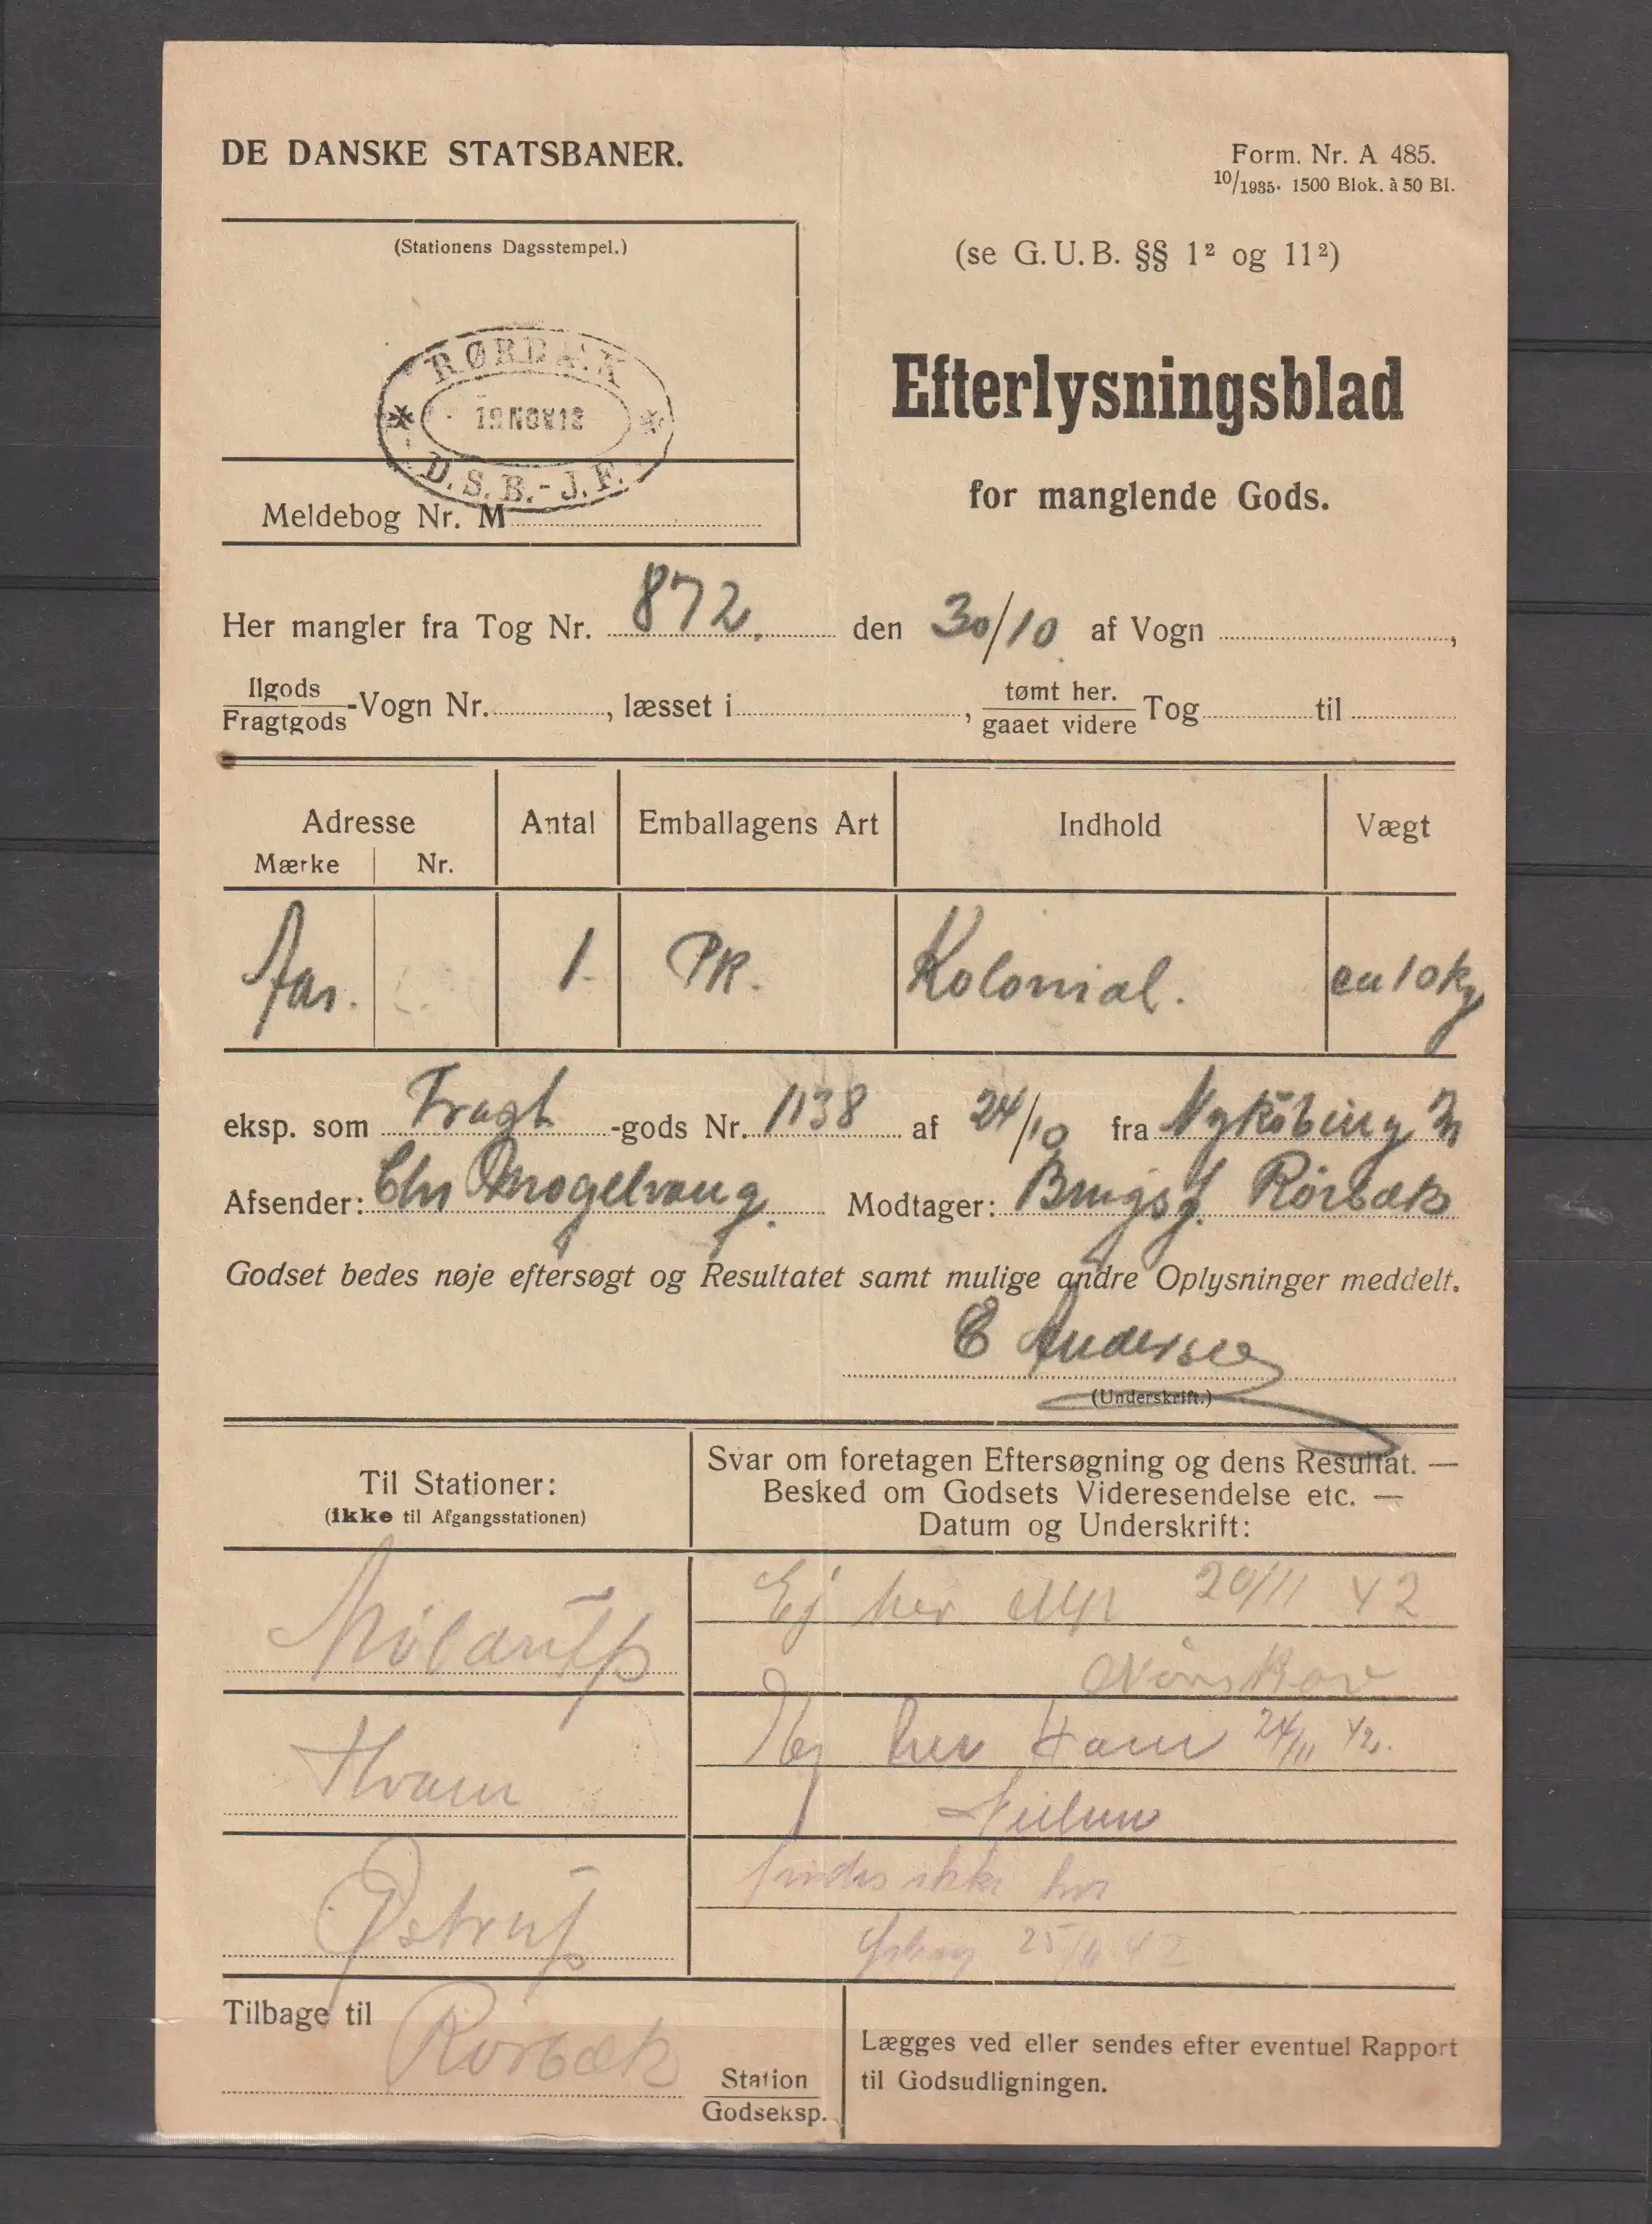 DE DANSKE STATSBANER.
Form. Nr. A 485.
10/1935. 1500 Blok. à 50 Bl.
(Stationens Dagsstempel.)
RØRBÆK
D.S.B.-J.F.
Meldebog Nr. M
(se G.U.B. §§ 1² og 11²)
Efterlysningsblad
for manglende Gods.
Her mangler fra Tog Nr. 872. den 30/10 af Vogn ,
Ilgods
Fragtgods -Vogn Nr. , læsset i , tømt her. gaaet videre Tog til
Adresse Antal Emballagens Art Indhold Vægt
Mærke Nr.
Aar. 1. PK. Kolonial. ca 10 kg
eksp. som Fragt -gods Nr. 1138 af 24/10 fra Nykøbing M
Afsender: Chr Mogelvang. Modtager: Brugsf. Rörbæk
Godset bedes nøje eftersøgt og Resultatet samt mulige andre Oplysninger meddelt.
E Andersen
(Underskrift.)
Til Stationer:
(ikke til Afgangsstationen)
Svar om foretagen Eftersøgning og dens Resultat. —
Besked om Godsets Videresendelse etc. —
Datum og Underskrift:
Møldrup
Ej her 20/11 42
Nørskov
Hvam
Ej her Hvam 24/11 42.
Nielsen
Østrup
findes ikke her
25/11 42
Tilbage til Rörbæk
Station
Godseksp.
Lægges ved eller sendes efter eventuel Rapport
til Godsudligningen.